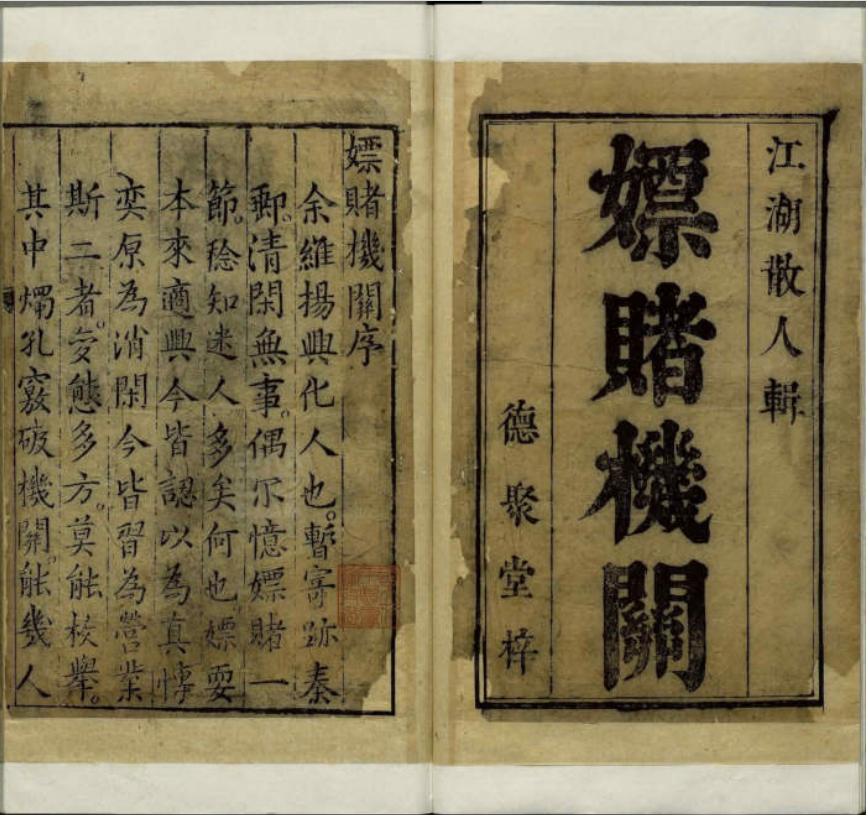 江湖散人輯
嫖賭機關
德聚堂梓
嫖賭機關序
余維揚興化人也。暫寄跡秦
郵。清閑無事。偶尔憶嫖賭一
節。稔知迷人多矣何也嫖耍
本來適興今皆認以為真慱
奕原為消閑今皆習為營業
斯二者。变態多方。莫能枚舉。
其中燭孔竅破機關。能幾人